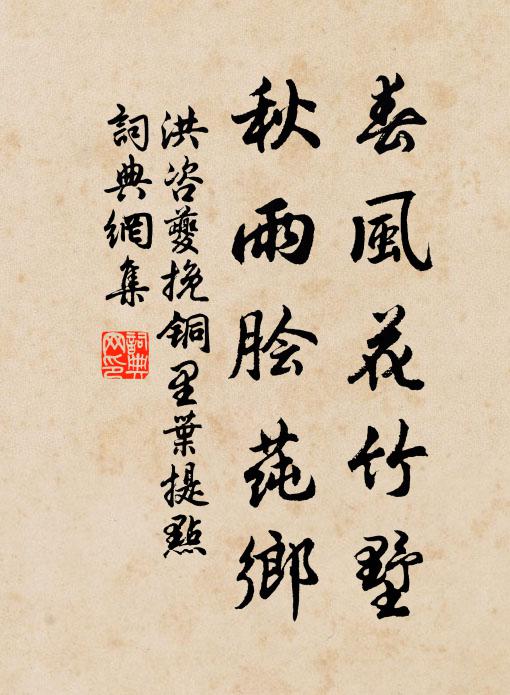 春風花竹墅
秋雨膾蒓鄉
洪咨夔挽铜里葉提點
詞典網集
詞典網印